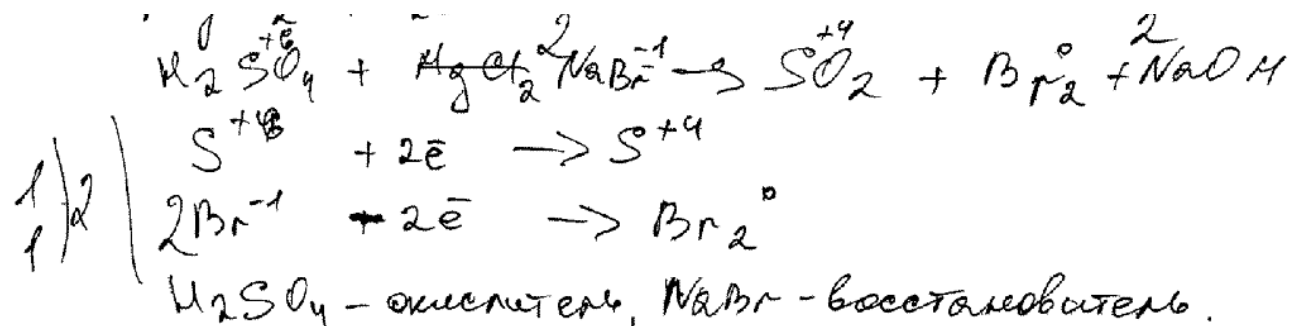 H₂S⁺⁶O₄ + 2NaBr⁻¹ → S⁺⁴O₂ + Br₂⁰ + 2NaOH
S⁺⁶ + 2ē → S⁺⁴
1 | 2 |
1 | 2Br⁻¹ - 2ē → Br₂⁰
H₂SO₄ - окислитель, NaBr - восстановитель.